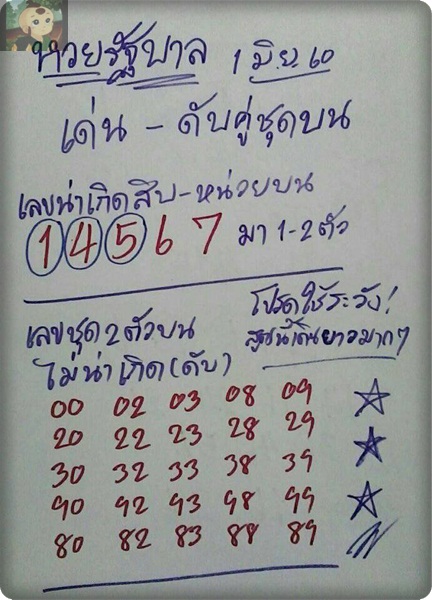 หวยรัฐบาล 1 มิย. 60
เด่น - ดับคู่ชุดบน
เลขน่าเกิดสิบ-หน่วยบน
1 4 5 6 7 มา 1-2 ตัว
เลขชุด 2 ตัวบน
ไม่น่าเกิด (ดับ)
โปรดใช้ระวัง!
สูตรนี้เดินยาวมากๆ
00 02 03 08 09
20 22 23 28 29
30 32 33 38 39
90 92 93 98 99
80 82 83 88 89